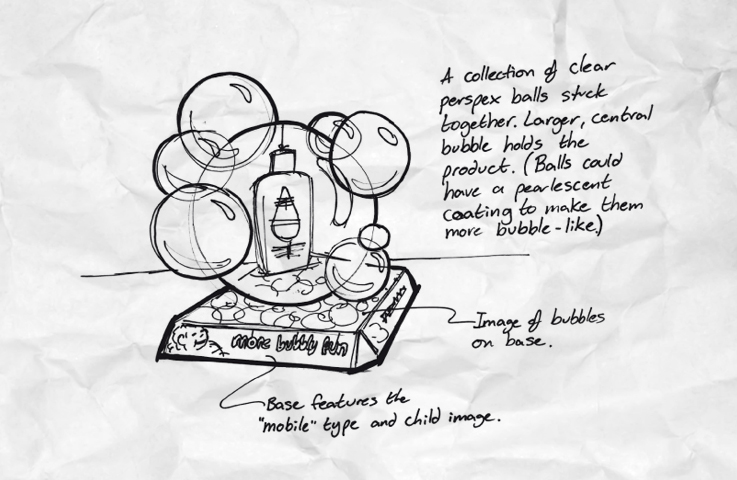 A collection of clear
perspex balls stuck
together. Larger, central
bubble holds the
product. (Balls could
have a pearlescent
coating to make them
more bubble-like.)
more bubbly fun
Image of bubbles
on base.
Base features the
"mobile" type and child image.